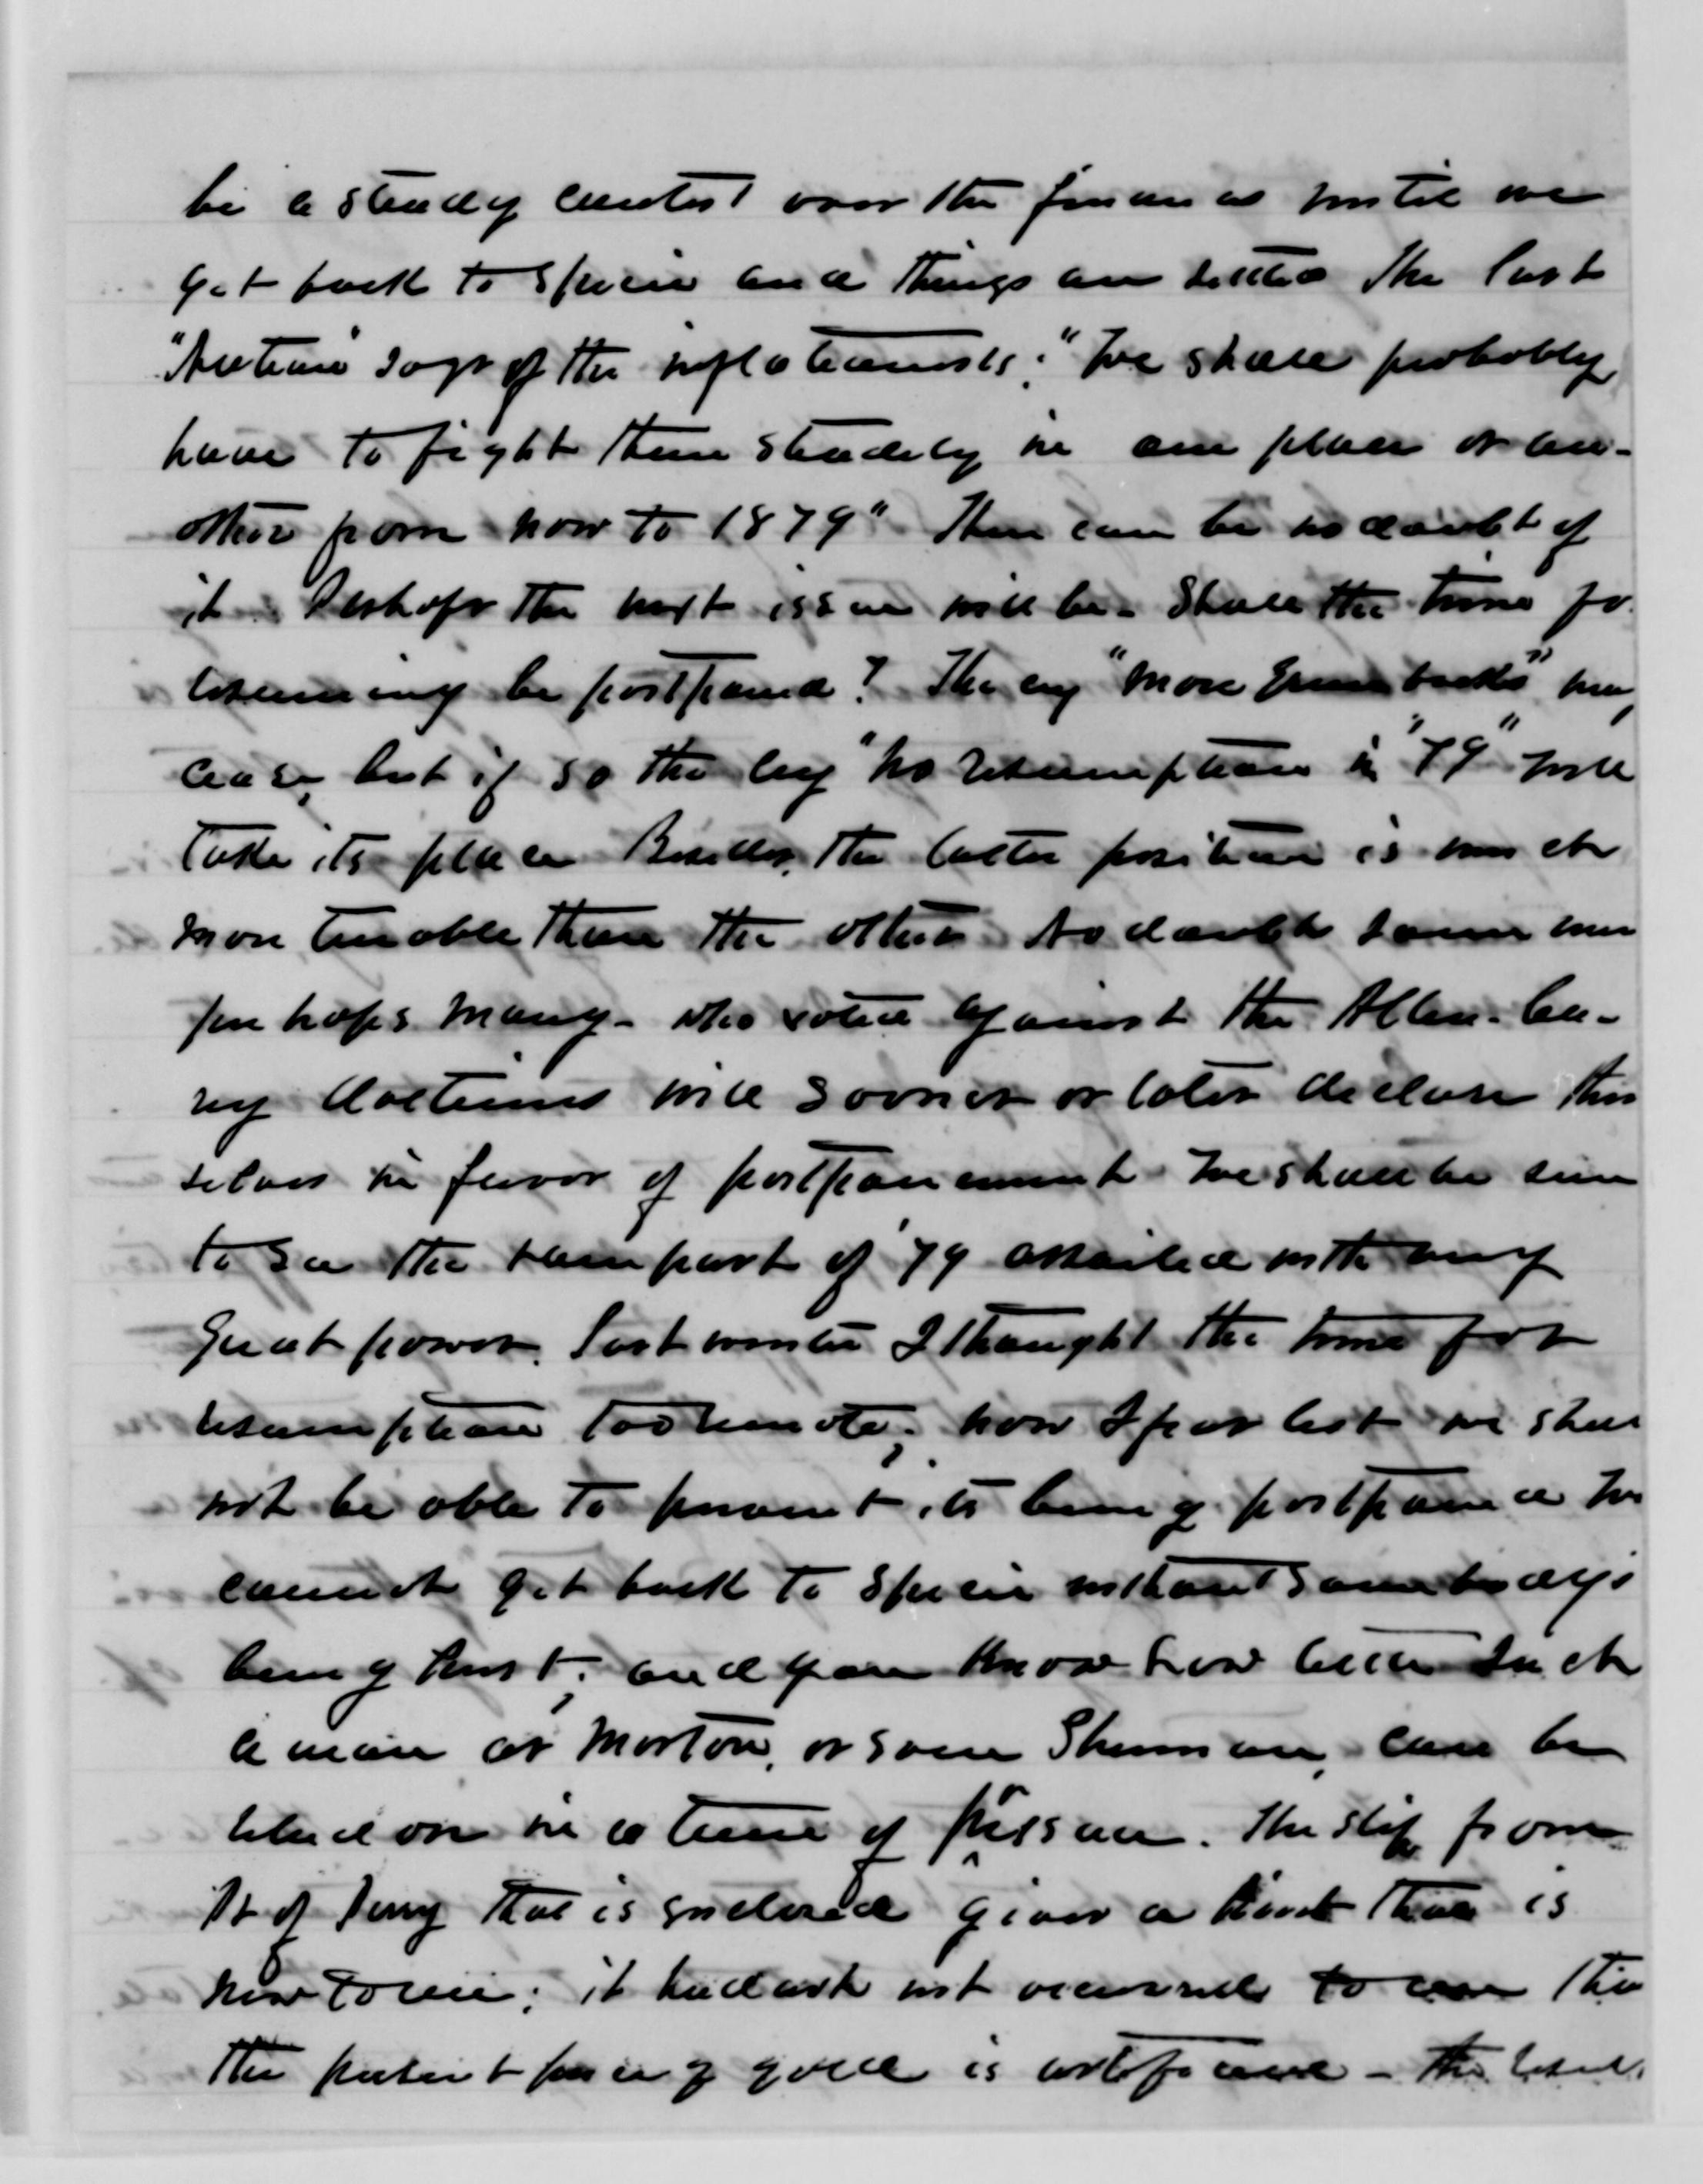 be a steady contest over the finances until we
get back to specie and things are settled The last
"Nation" says of the inflationists: "We shall probably
have to fight them steadily in one place or an-
other from now to 1879" There can be no doubt of
it. Perhaps the next issue will be - Shall the time for
resuming be postponed? The cry "More Greenbacks" may
cease, but if so the cry "No resumption in '79" will
take its place Besides, the latter position is much
more tenable than the other. No doubt some men
perhaps many - who voted against the Allen-Ca-
ry doctrines will sooner or later declare them
selves in favor of postponement. We shall be sure
to see the rampart of '79 assailed with very
great power. Last winter I thought the time for
resumption too remote; now I fear lest we shall
not be able to prevent its being postponed We
cannot get back to specie without somebody's
being hurt; and you know how little such
a man as Morton, or even Sherman, can be
relied on in a time of pressure. The slip from
that is enclosed gives a hint that is
new to me; it had not occurred to me tha
the present price of gold is artificial - the